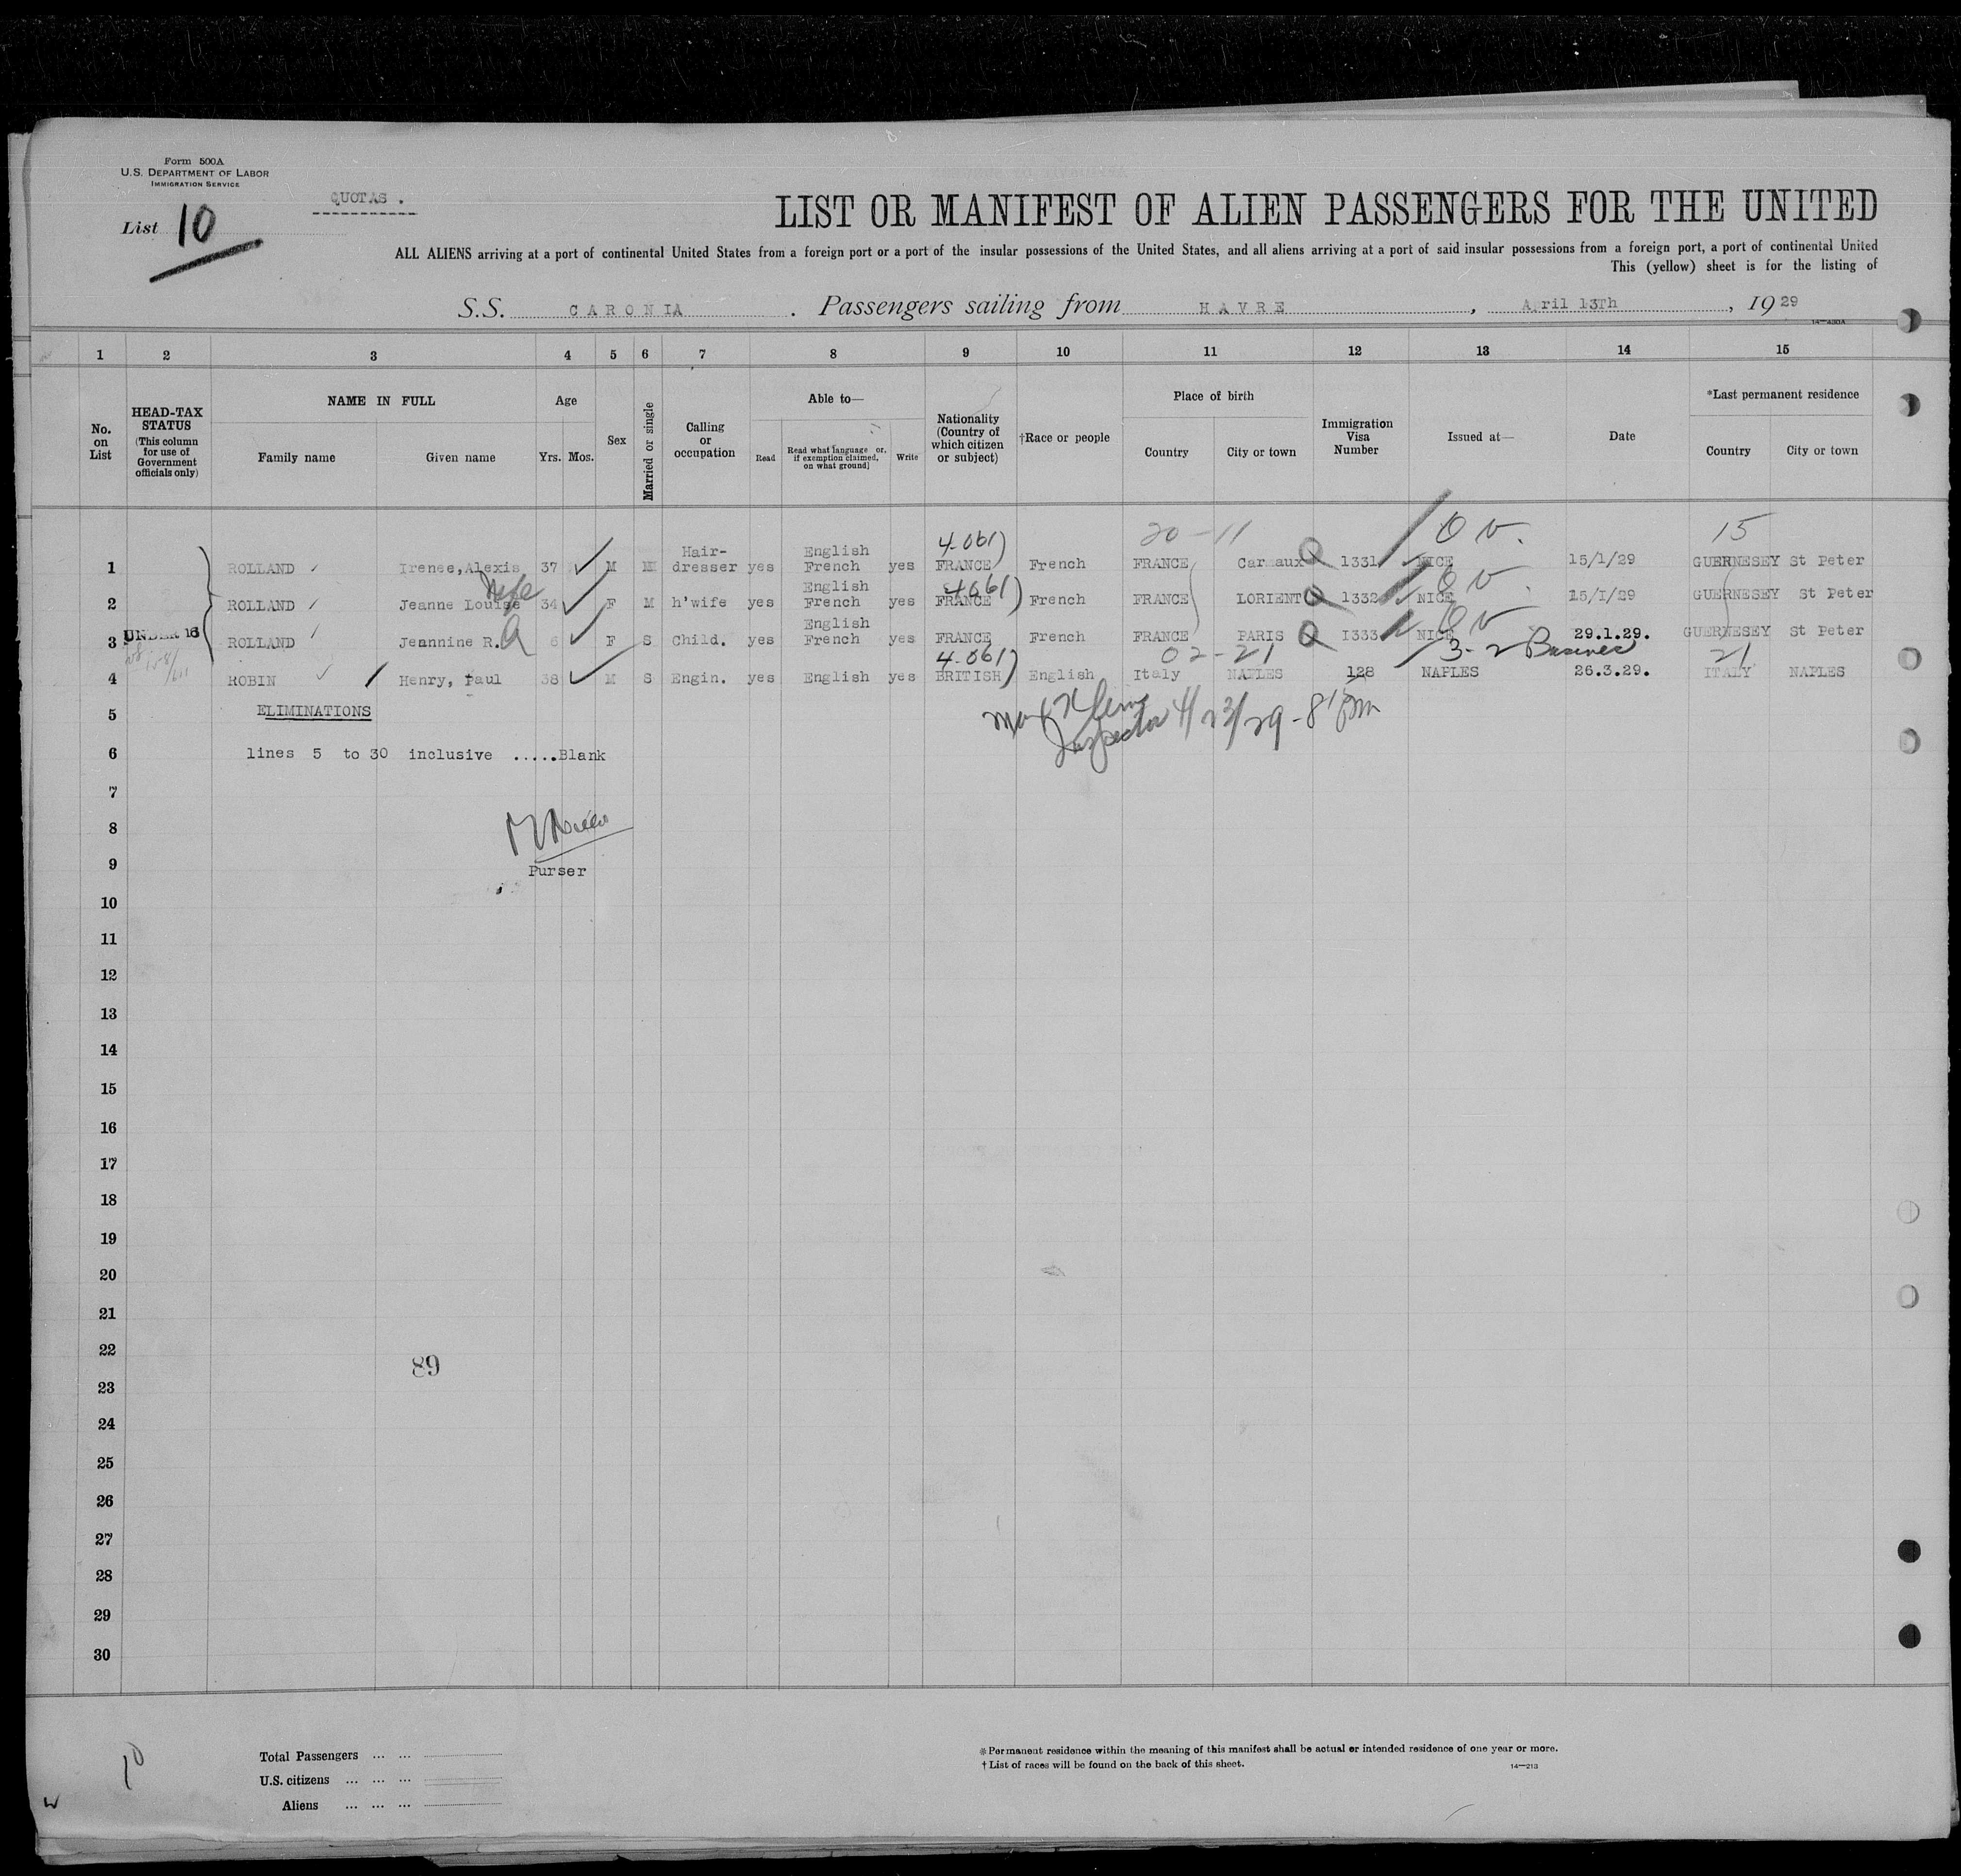 Form 500A
U.S. DEPARTMENT OF LABOR
IMMIGRATION SERVICE
QUOTAS .
List 10
LIST OR MANIFEST OF ALIEN PASSENGERS FOR THE UNITED
ALL ALIENS arriving at a port of continental United States from a foreign port or a port of the insular possessions of the United States, and all aliens arriving at a port of said insular possessions from a foreign port, a port of continental United
This (yellow) sheet is for the listing of
S.S. CARONIA . Passengers sailing from HAVRE , April 13Th , 1929
14—430A
1 2 3 4 5 6 7 8 9 10 11 12 13 14 15
No. on List
HEAD-TAX STATUS (This column for use of Government officials only)
NAME IN FULL
Family name
Given name
Age
Yrs. Mos.
Sex
Married or single
Calling or occupation
Able to—
Read
Read what language or, if exemption claimed, on what ground]
Write
Nationality (Country of which citizen or subject)
†Race or people
Place of birth
Country
City or town
Immigration Visa Number
Issued at—
Date
*Last permanent residence
Country
City or town
4-061) 20-11 O V. 15
1 ROLLAND Irenee,Alexis 37 M M Hair-dresser yes English French yes FRANCE French FRANCE Carmaux Q 1331 NICE 15/1/29 GUERNESEY St Peter
Wife 4061) O V.
2 ROLLAND Jeanne Louise 34 F M h'wife yes English French yes FRANCE French FRANCE LORIENT Q 1332 NICE 15/I/29 GUERNESEY St Peter
O V
UNDER 16
3 ROLLAND Jeannine R. 6 F S Child. yes English French yes FRANCE French FRANCE PARIS Q I333 NICE 29.1.29. GUERNESEY St Peter
4-061) 02-21 3-2 Business 21
4 ROBIN Henry, Paul 38 M S Engin. yes English yes BRITISH English Italy NAPLES 128 NAPLES 26.3.29. ITALY NAPLES
5 ELIMINATIONS
Inspector 4/23/29 - 815pm
6 lines 5 to 30 inclusive .....Blank
7
8
9 Purser
10
11
12
13
14
15
16
17
18
19
20
21
22 89
23
24
25
26
27
28
29
30
10
Total Passengers ... ...
U.S. citizens ... ... ...
Aliens ... ... ...
*Permanent residence within the meaning of this manifest shall be actual or intended residence of one year or more.
†List of races will be found on the back of this sheet.
14—213